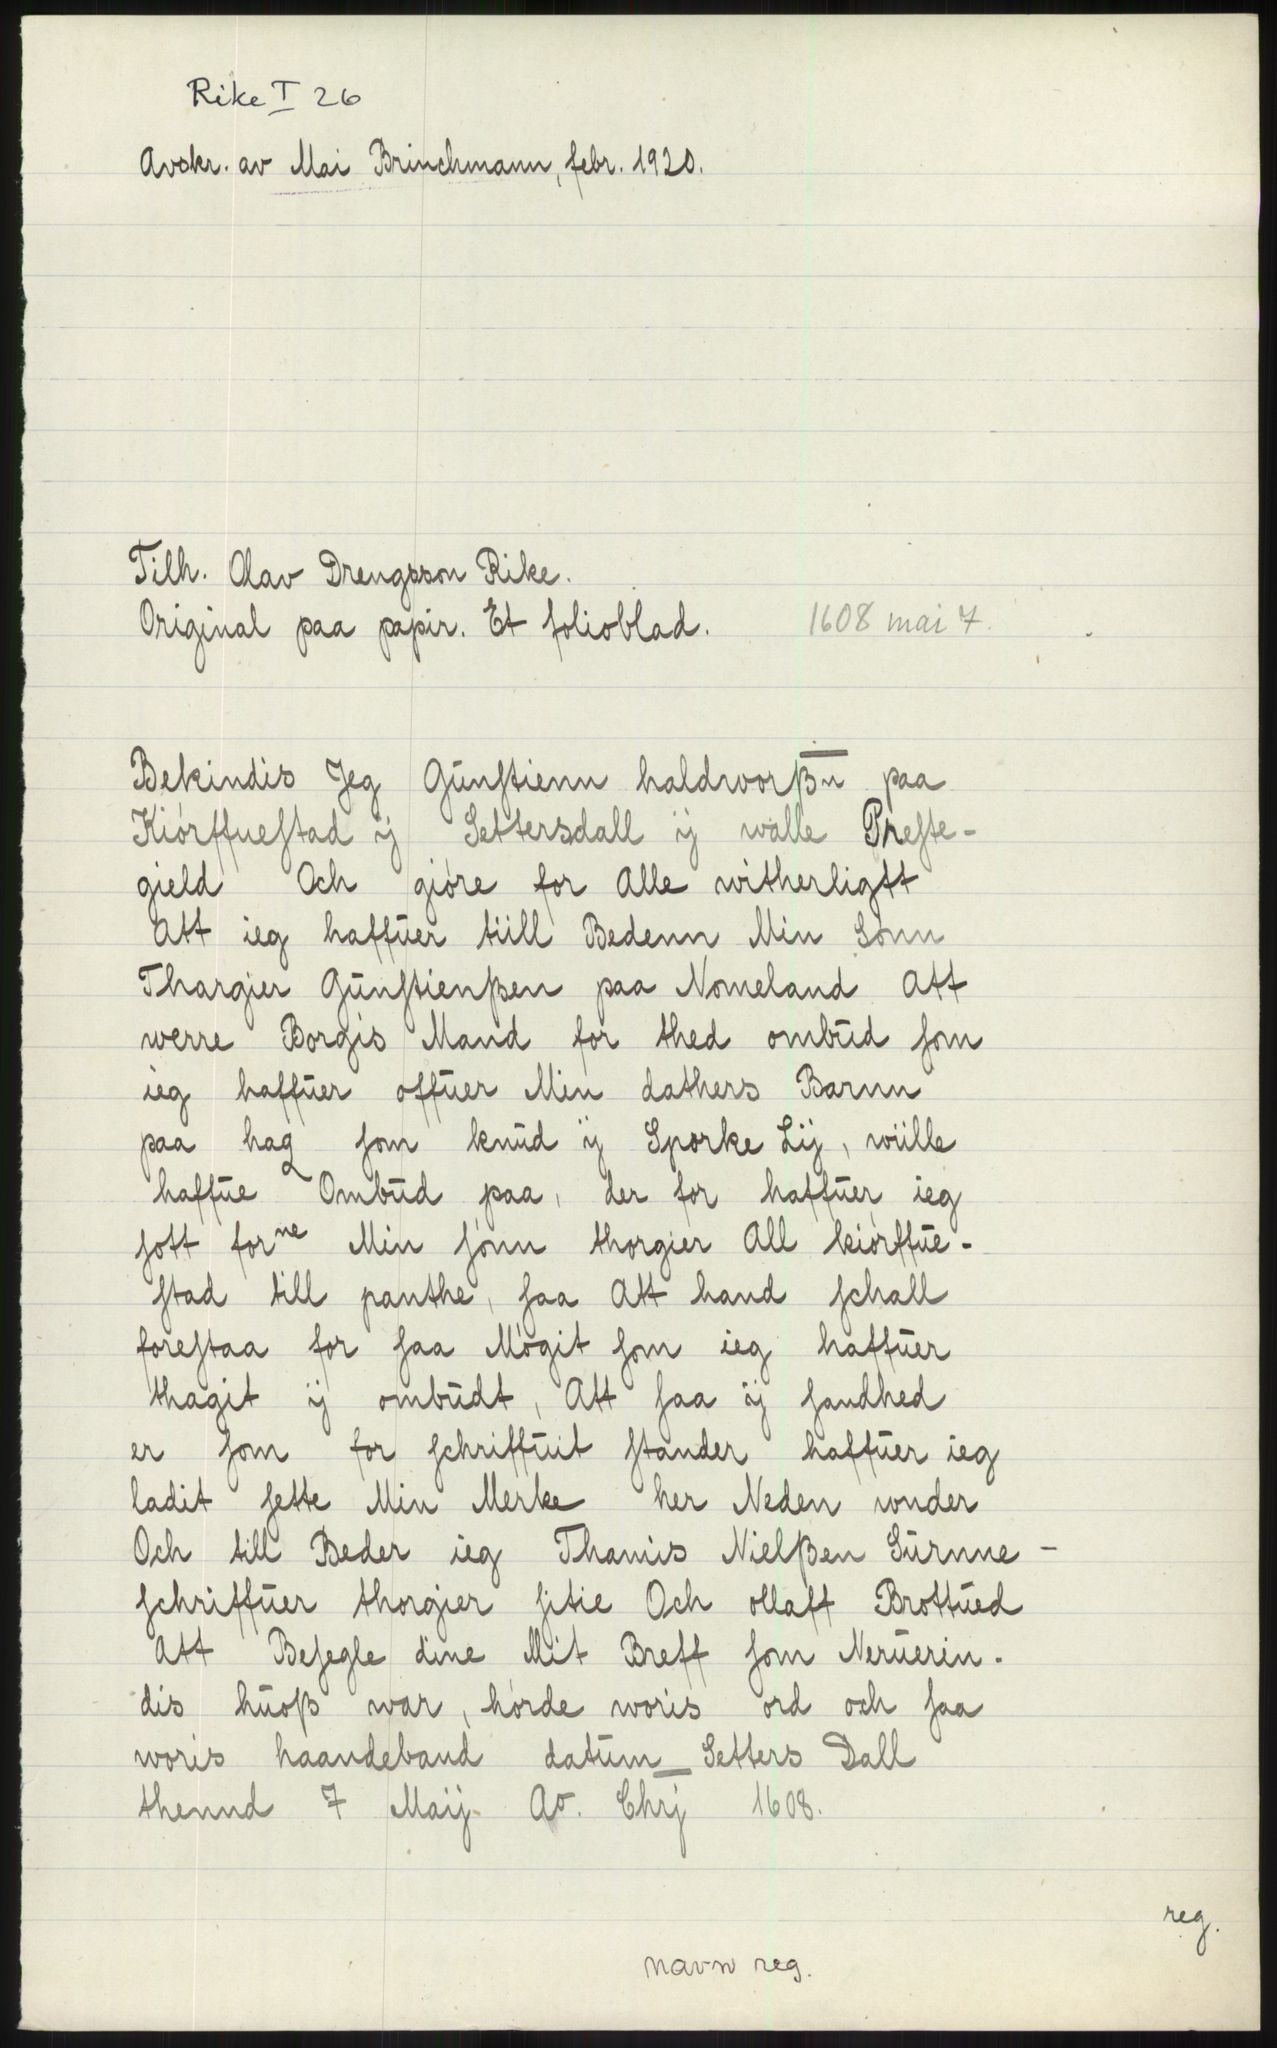 Rike I 26
Avskr. av Mai Brinchmann, febr. 1920.
Tilh. Olav Drengsson Rike.
Original paa papir. Et folioblad. 1608 mai 7.
Bekindis Jeg Günſtienn haldworßn̅ paa
Kiórffueſtad ÿ Settersdall ÿ walle Preſte-
gield Och gióre for Alle witherligtt
Att ieg haffŭer tiill Bedenn Min Sónn
Thargier Gŭnſtienßen paa Nomeland Att
werre Borgis Mand for thed ombŭd ſom
ieg haffŭer offŭer Min dathers Barnn
paa hag ſom knŭd ÿ Sporke Lij, wiille
haffŭe Ombŭd paa, der for haffŭer ieg
ſott forne Min ſónn thorgier All kiórffŭe-
ſtad till panthe, ſaa Att hand ſchall
foreſtaa for ſaa Mógit ſom ieg haffŭer
thagit ÿ ombŭdt, Att ſaa ÿ ſandhed
er ſom for ſchriffŭit ſtander haffŭer ieg
ladit ſette Min Merke her Neden wnder
Och till Beder ieg Thamis Nielßen Sŭrnne-
ſchriffŭer thorgier ſitie Och ollaff Brottŭed
Att Beſegle dine Mit Breff ſom Nerŭerin-
dis hŭoß war, hórde woris ord och ſaa
woris haandeband datŭm Setters Dall
thennd 7 Maij Ao. Chrj 1608.
reg.
navn reg.